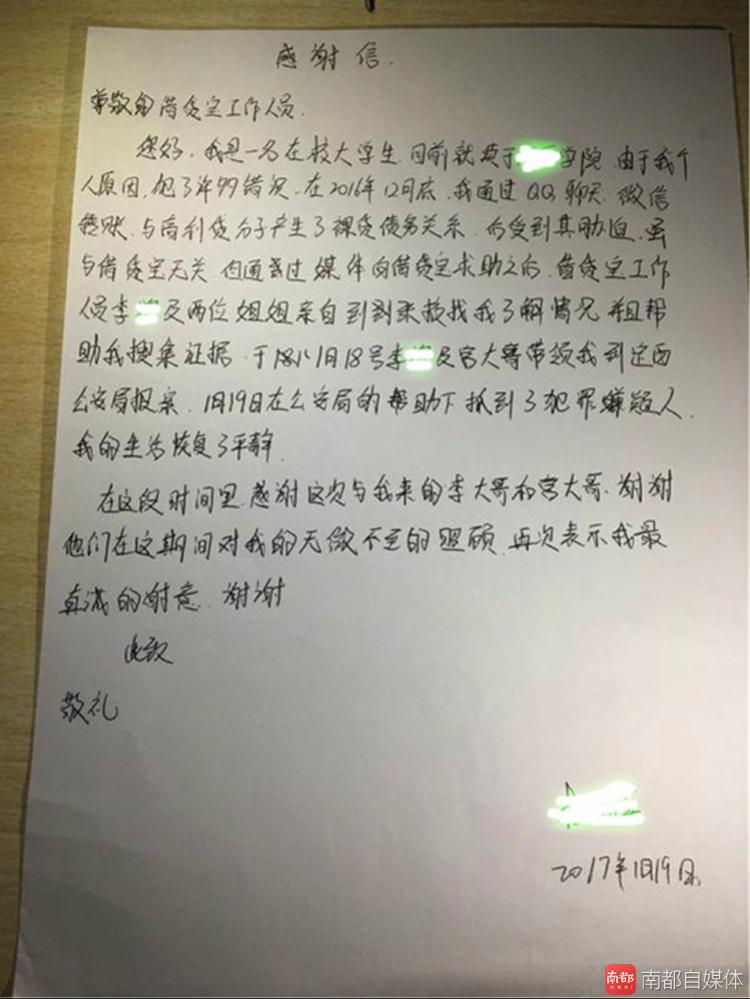 感谢信.
尊敬的借贷宝工作人员.
您好.我是一名在校大学生.目前就读于 学院.由于我个
人原因,犯了许多错误.在2016年12月底.我通过QQ聊天.微信
转账.与高利贷分子产生了裸贷债务关系.后受到其胁迫.虽
与借贷宝无关.但通过媒体向借贷宝求助之后.借贷宝工作
人员李 及两位姐姐亲自到到来校找我了解情况并且帮
助我搜集证据.于 1月18号李 及宫大哥带领我到定西
公安局报案.1月19日在公安局的帮助下抓到了犯罪嫌疑人.
我的生活恢复了平静.
在这段时间里.感谢这次与我来的李大哥和宫大哥.谢谢
他们在这期间对我的无微不至的照顾.再次表示我最
真诚的谢意.谢谢
此致
敬礼
2017年1月19日.
南都 南都自媒体